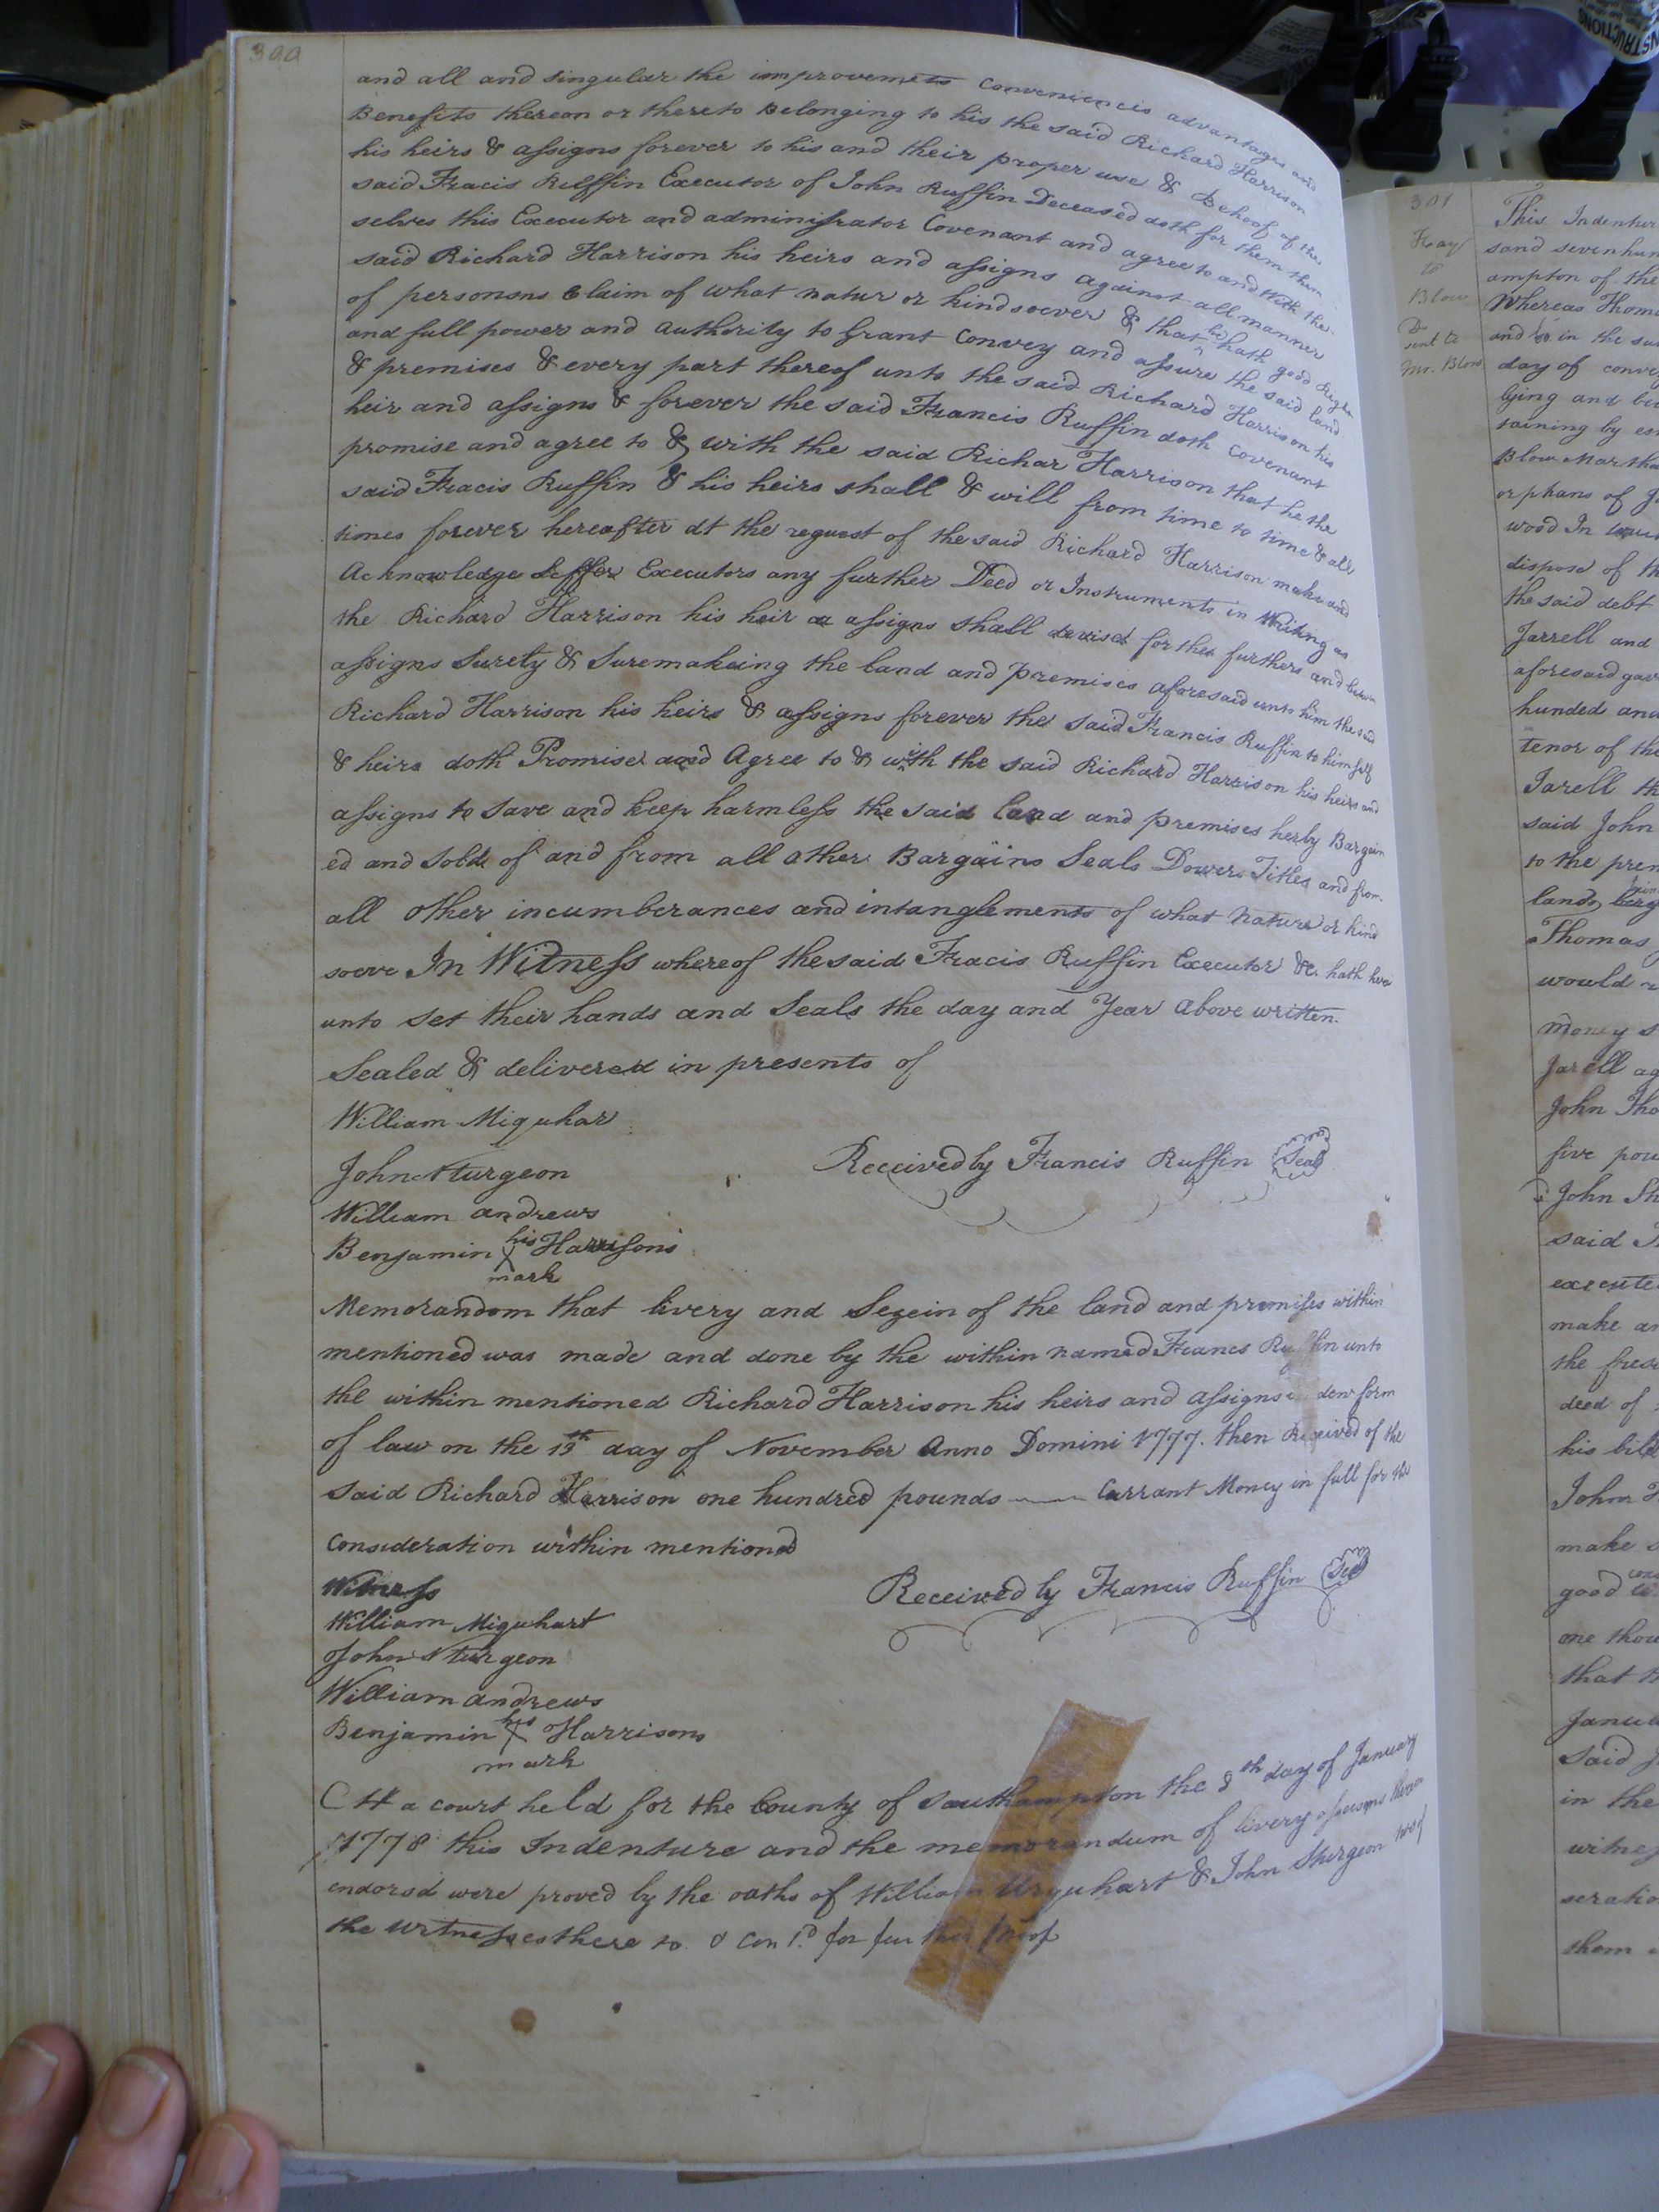 300
and all and singular the improvemets conveniencis advantages and
Benefits thereon or thereto Belonging to his the said Richard Harrison
his heirs & assigns forever to his and their proper use & Behoof of the
said Fracis Ruffin Executor of John Ruffin Deceased doth for them them
selves this Executor and administrator Covenant and agree to and With the
said Richard Harrison his heirs and assigns against all manner
of personsns Claim of what natur or kind soever & that he hath good Right
and full power and authority to Grant Convey and assure the said land
& premises & every part thereof unto the said Richard Harrison his
heir and assigns & forever the said Francis Ruffin doth Covenant
promise and agree to & with the said Richar Harrison that he the
said Fracis Ruffin & his heirs shall & will from time to time & all
times forever hereafter at the request of the said Richard Harrison make and
Acknowledge Executors any further Deed or Instruments in Writing as
the Richard Harrison his heir or assigns shall devised for the furthers and
assigns Surety & Suremakeing the land and premises aforesaid unto him the said
Richard Harrison his heirs & assigns forever the said Francis Ruffin to himself
& heirs doth Promised and Agree to & with the said Richard Harrison his heirs and
assigns to Save and keep harmless the said Land and premises herby Bargain
ed and Sold of and from all other Bargains Seals Dowers Titles and from
all other incumberances and intanglements of what nature or kind
soeve In Witness whereof the said Fracis Ruffin Executor &c. hath here
unto set their hands and Seals the day and Year above written.
Sealed & delivered in presents of
William Miquhar
Received by Francis Ruffin Seal
John Sturgeon
William andrews
Benjamin his X mark Harrisons
Memorandom that livery and Sezein of the land and premises within
mentioned was made and done by the within named Frances Ruffin unto
the within mentioned Richard Harrison his heirs and assigns in dew form
of law on the 13th day of November Anno Domini 1777. then Received of the
Said Richard Harrison one hundred pounds Currant Money in full for the
Consideration within mentioned
Witness
Received by Francis Ruffin Seal
William Miquhart
John Sturgeon
William andrews
Benjamin his X mark Harrisons
Att a court held for the County of Southampton the 8th day of January
1778 this Indenture and the memorandum of livery
endorsd were proved by the oaths of William Urquhart & John Sturgeon two of
the witnesses there to & Contd. for further proof
301
Hay
to
Blow
Dr
sent to
Mr. Blow
This Indentur
sand seven hun
ampton of the
Whereas Thom
and in the
day of conve
lying and
taining by es
Blow Martha
orphans of
wood In
dispose of th
the said debt
Jarrell and
aforesaid gav
hunded and
tenor of the
Jarell th
said John
to the prem
lands
Thomas
would
money s
Jarell ag
John Tho
five pou
John Sh
said
execute
make an
the
deed of
his bill
John
make
good
one thou
that
Janua
Said
in the
witnes
seratio
them